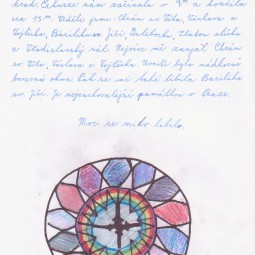 hrad. Exkurze nám začínala v 9⁰⁰ a končila
cca 15⁰⁰. Viděli jsme Chrám sv. Víta, Václava a
Vojtěcha, Baziliku sv. Jiří, Daliborku, Zlatou uličku
a Vladislavský sál. Nejvíce mě zaujal Chrám
sv. Víta, Václava a Vojtěcha. Uvnitř byla nádherná
barevná okna. Pak se mi také líbila Bazilika
sv. Jiří. Je nejzachovalejší památkou v Praze.
Moc se mi to líbilo.